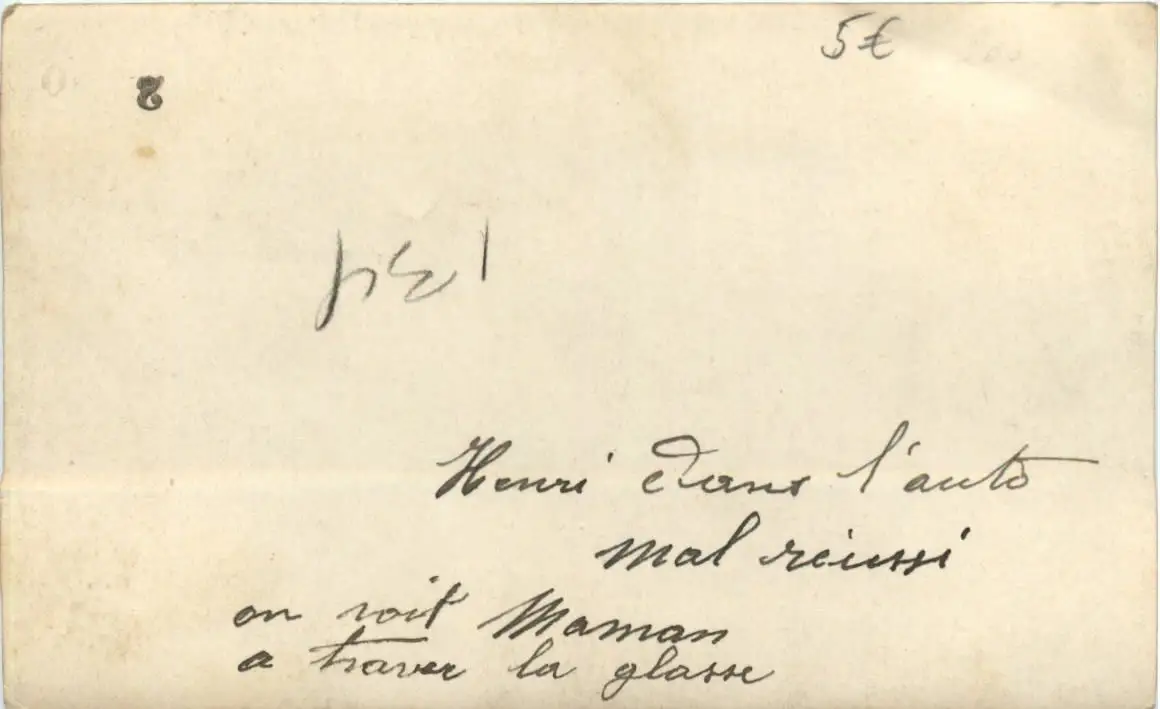 5€
2
Henri dans l'auto
mal réussi
on voit Maman
a traver la glasse